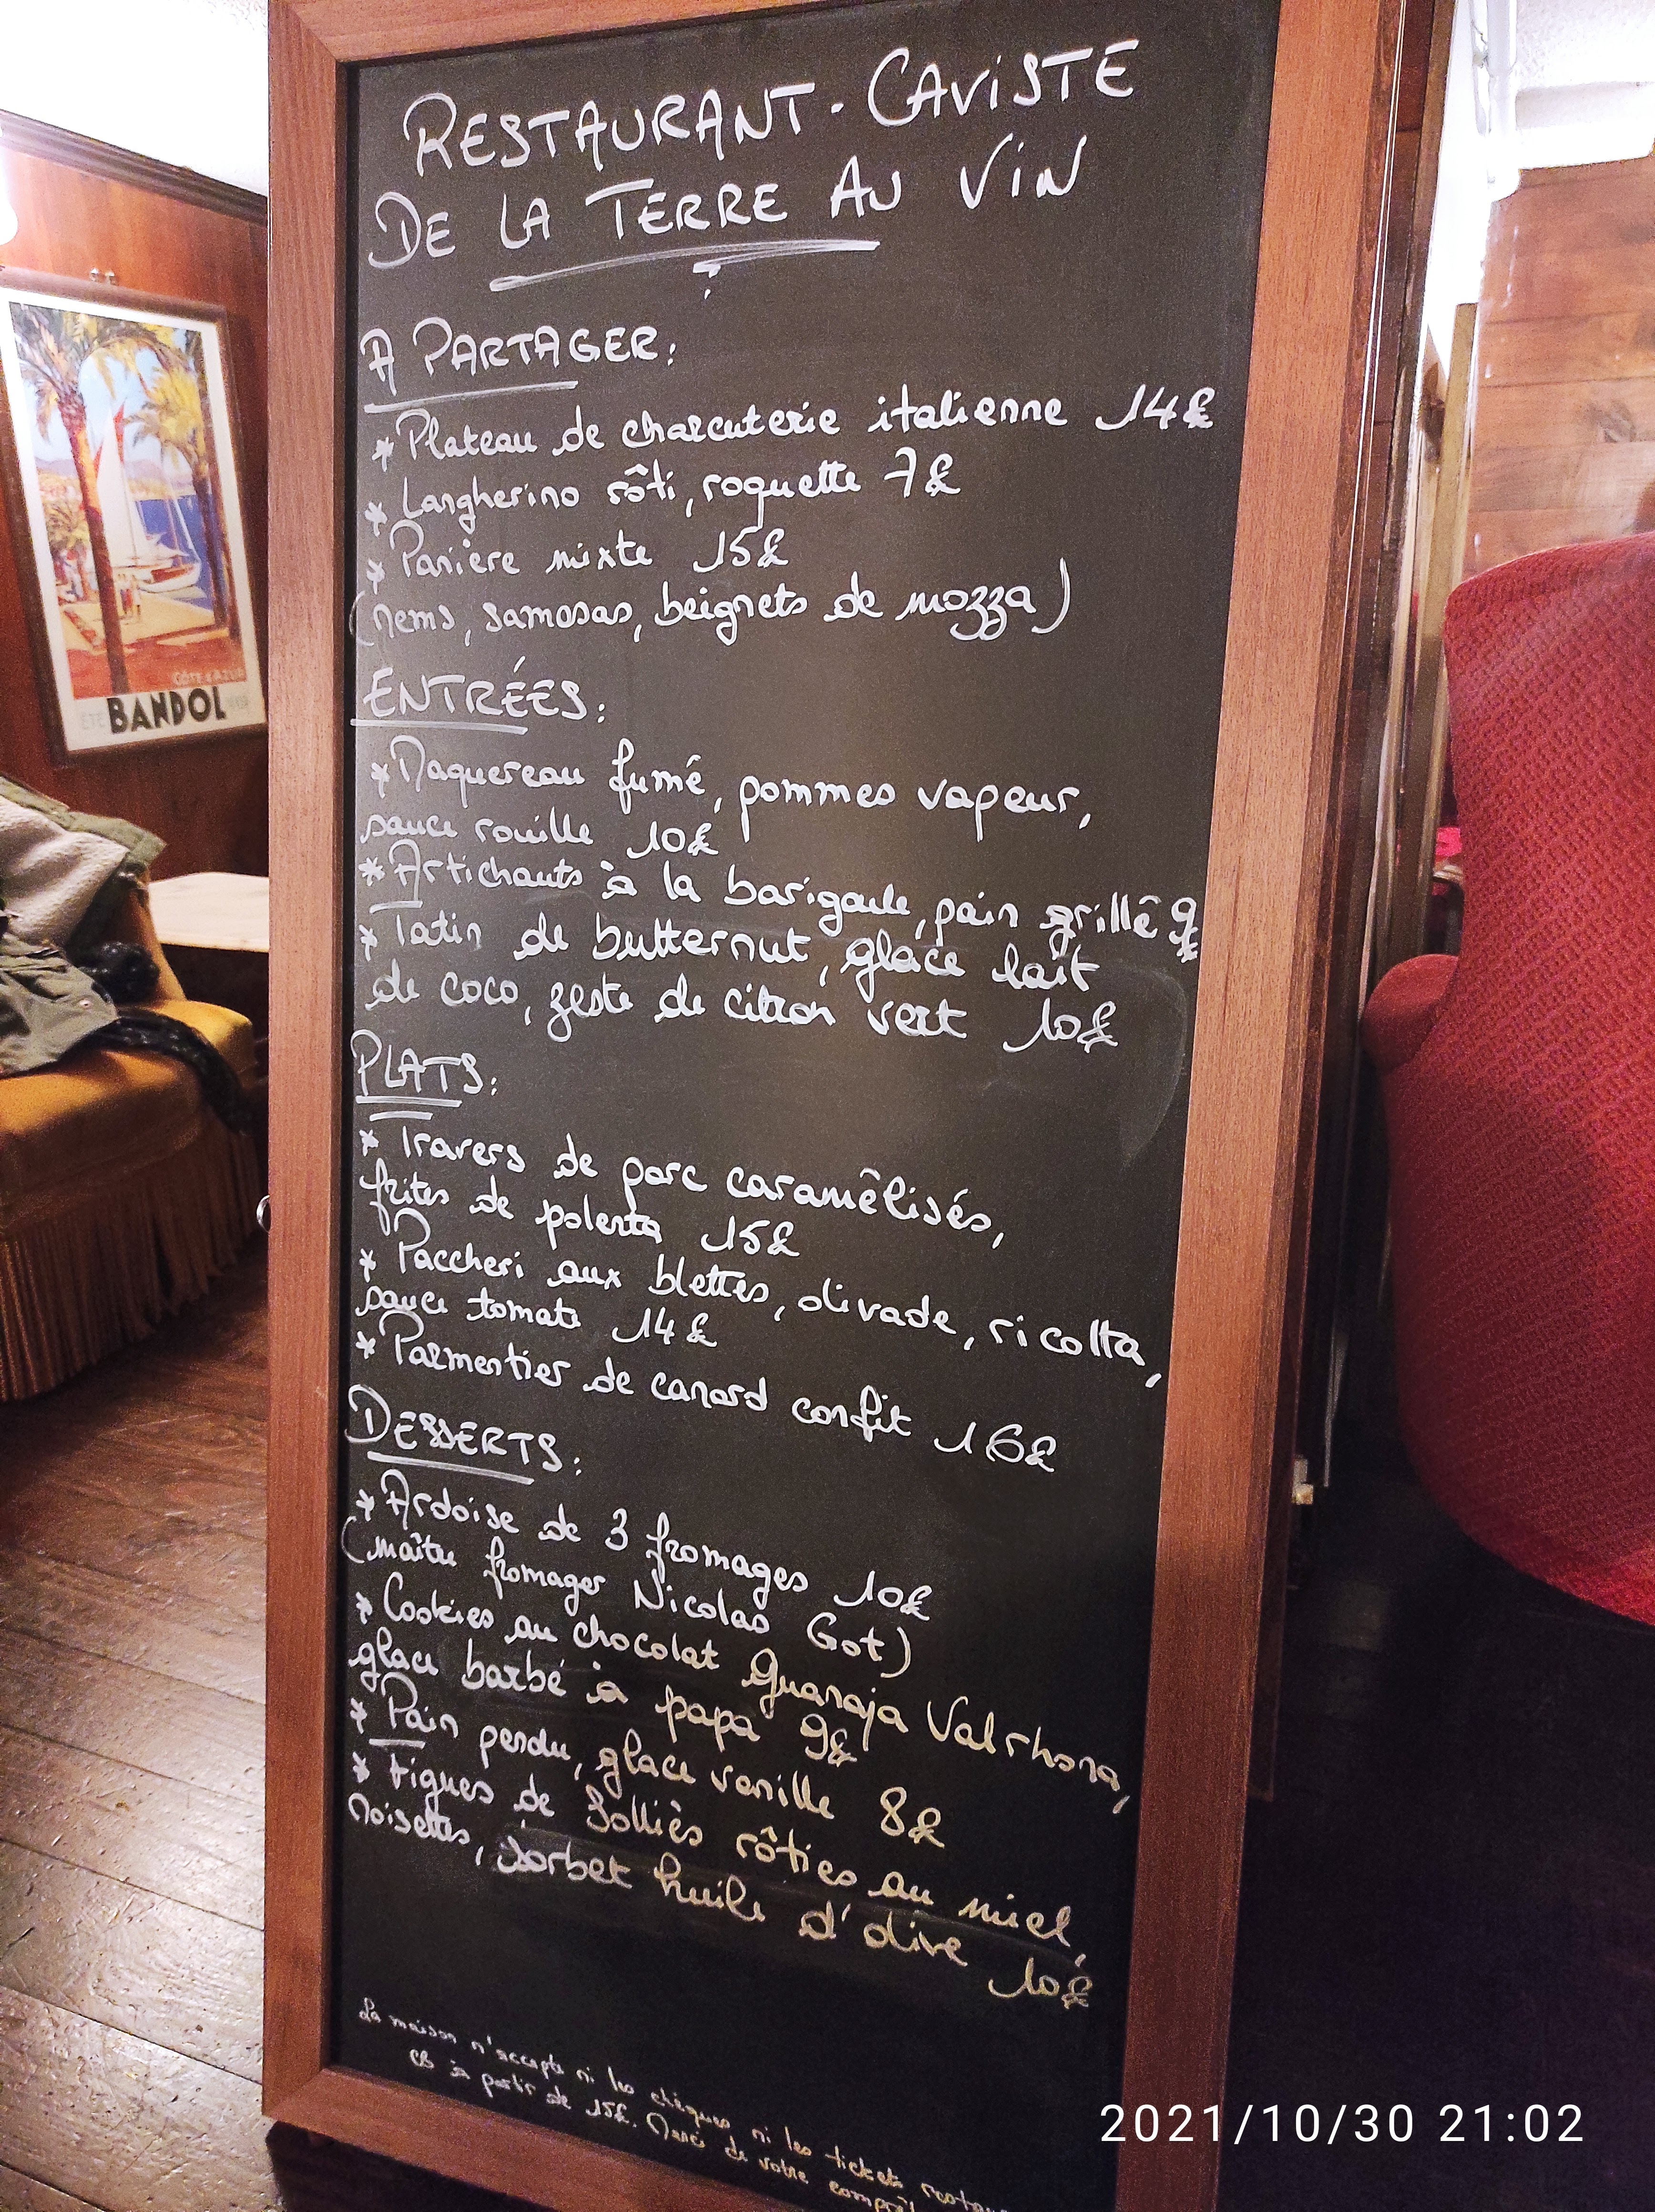 RESTAURANT-CAVISTE
DE LA TERRE AU VIN
A PARTAGER:
* Plateau de charcuterie italienne 14€
* Langherino rôti, roquette 7€
* Panière mixte 15€
(nems, samosas, beignets de mozza)
ENTRÉES:
* Maquereau fumé, pommes vapeur,
sauce rouille 10€
* Artichauts à la barigoule, pain grillé 9€
* Tatin de butternut, glace lait
de coco, zeste de citron vert 10€
PLATS:
* Travers de porc caramélisés,
frites de polenta 15€
* Paccheri aux blettes, olivade, ricotta,
sauce tomate 14€
* Parmentier de canard confit 16€
DESSERTS:
* Ardoise de 3 fromages 10€
(maître fromager Nicolas Got)
* Cookies au chocolat Guanaja Valrhona,
glace barbe à papa 9€
* Pain perdu, glace vanille 8€
* Figues de Solliès rôties au miel,
noisettes, sorbet huile d'olive 10€
La maison n'accepte ni les chèques ni les tickets restau
CB à partir de 15€. Merci de votre compré
CÔTE d'AZUR
ÉTÉ BANDOL
2021/10/30 21:02